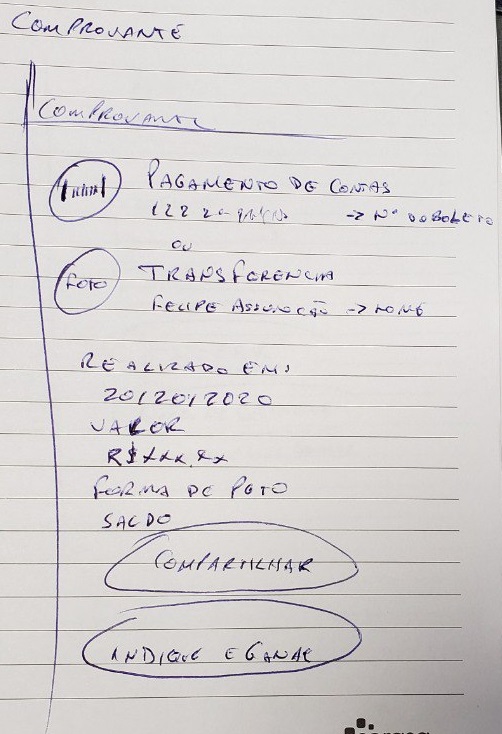 COMPROVANTE
COMPROVANTE
PAGAMENTO DE CONTAS
-> Nº DO BOLETO
OU
FOTO TRANSFERENCIA
FELIPE ASSUNÇÃO -> NOME
REALIZADO EM:
20/20/2020
VALOR
R$XXX,XX
FORMA DE PGTO
SALDO
COMPARTILHAR
INDIQUE E GANHE